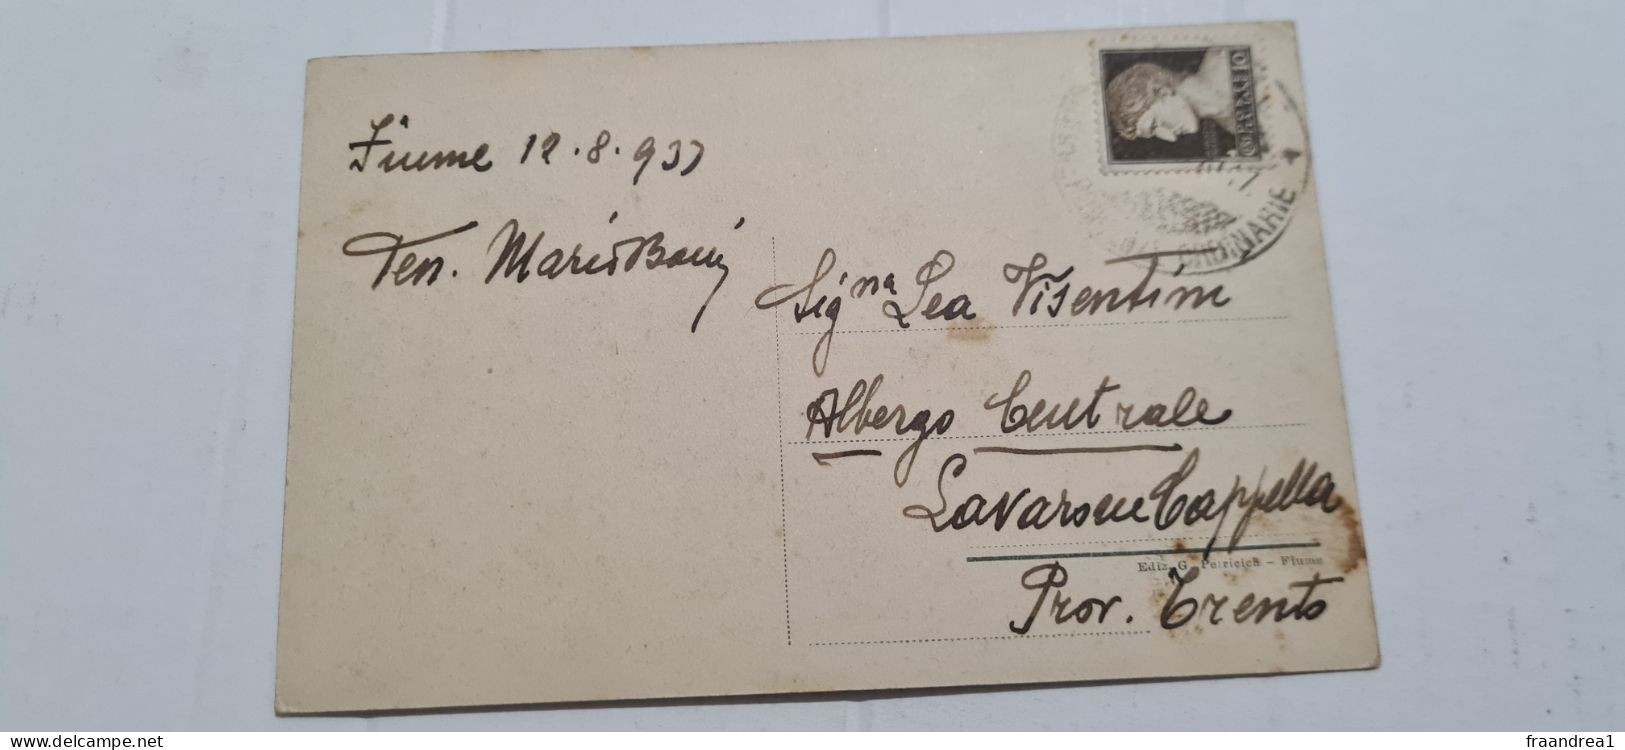 Fiume 12.8.937
Ten. Mario
Sig.na Lea Visentini
Albergo Centrale
Lavarone Cappella
Ediz. G. Petricich - Fiume
Prov. Trento
ORDINARIE
www.delcampe.net
fraandrea1